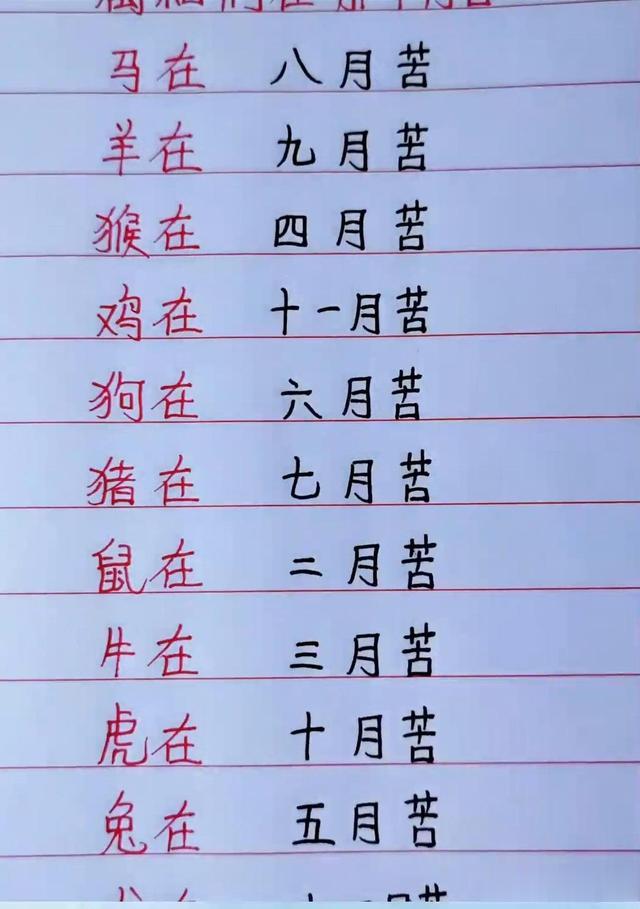 马在 八月苦
羊在 九月苦
猴在 四月苦
鸡在 十一月苦
狗在 六月苦
猪在 七月苦
鼠在 二月苦
牛在 三月苦
虎在 十月苦
兔在 五月苦